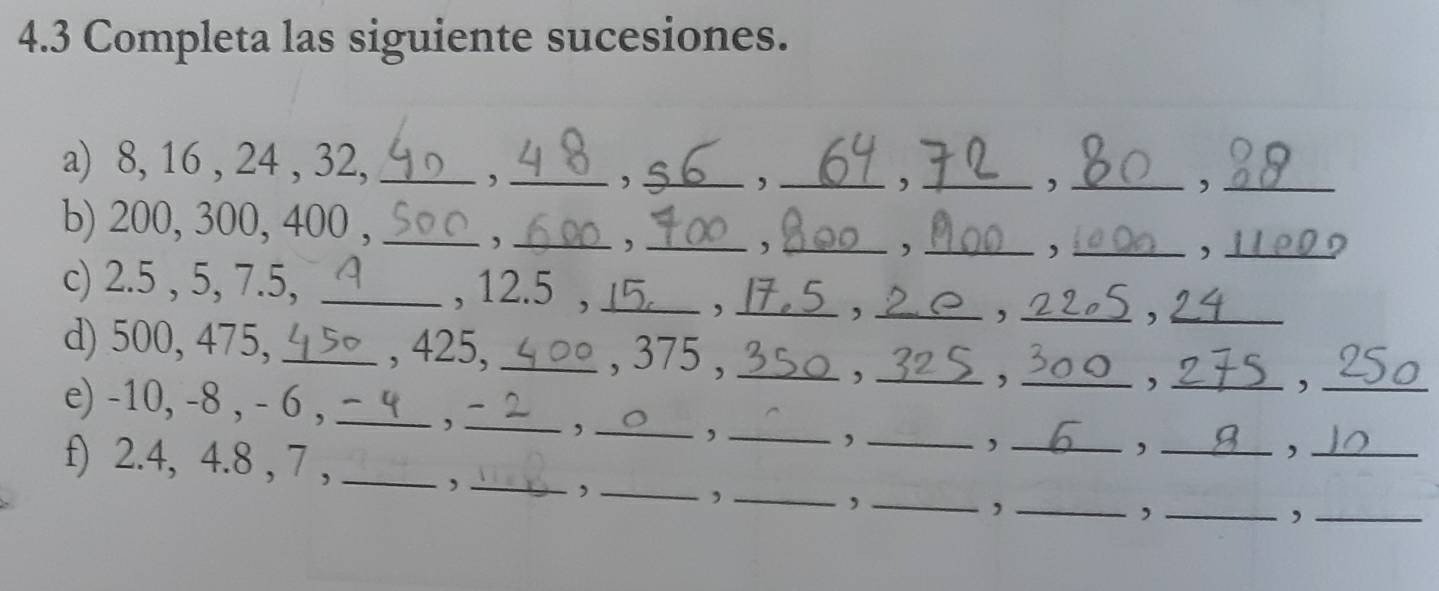 4.3 Completa las siguiente sucesiones.
a) 8, 16 , 24 , 32, 40 , 48 , 56 , 64 , 72 , 80 , 88
b) 200, 300, 400 , 500 , 600 , 700 , 800 , 900 , 1000 , 11000
c) 2.5 , 5, 7.5, 9 , 12.5 , 15 , 17.5 , 20 , 22.5 , 24
d) 500, 475, 450 , 425, 400 , 375 , 350 , 325 , 300 , 275 , 250
e) -10, -8 , - 6 , -4 , -2 , 0 , ____ , ____ , 6 , 8 , 10
f) 2.4, 4.8 , 7 , ____ , ____ , ____ , ____ , ____ , ____ , ____ , ____